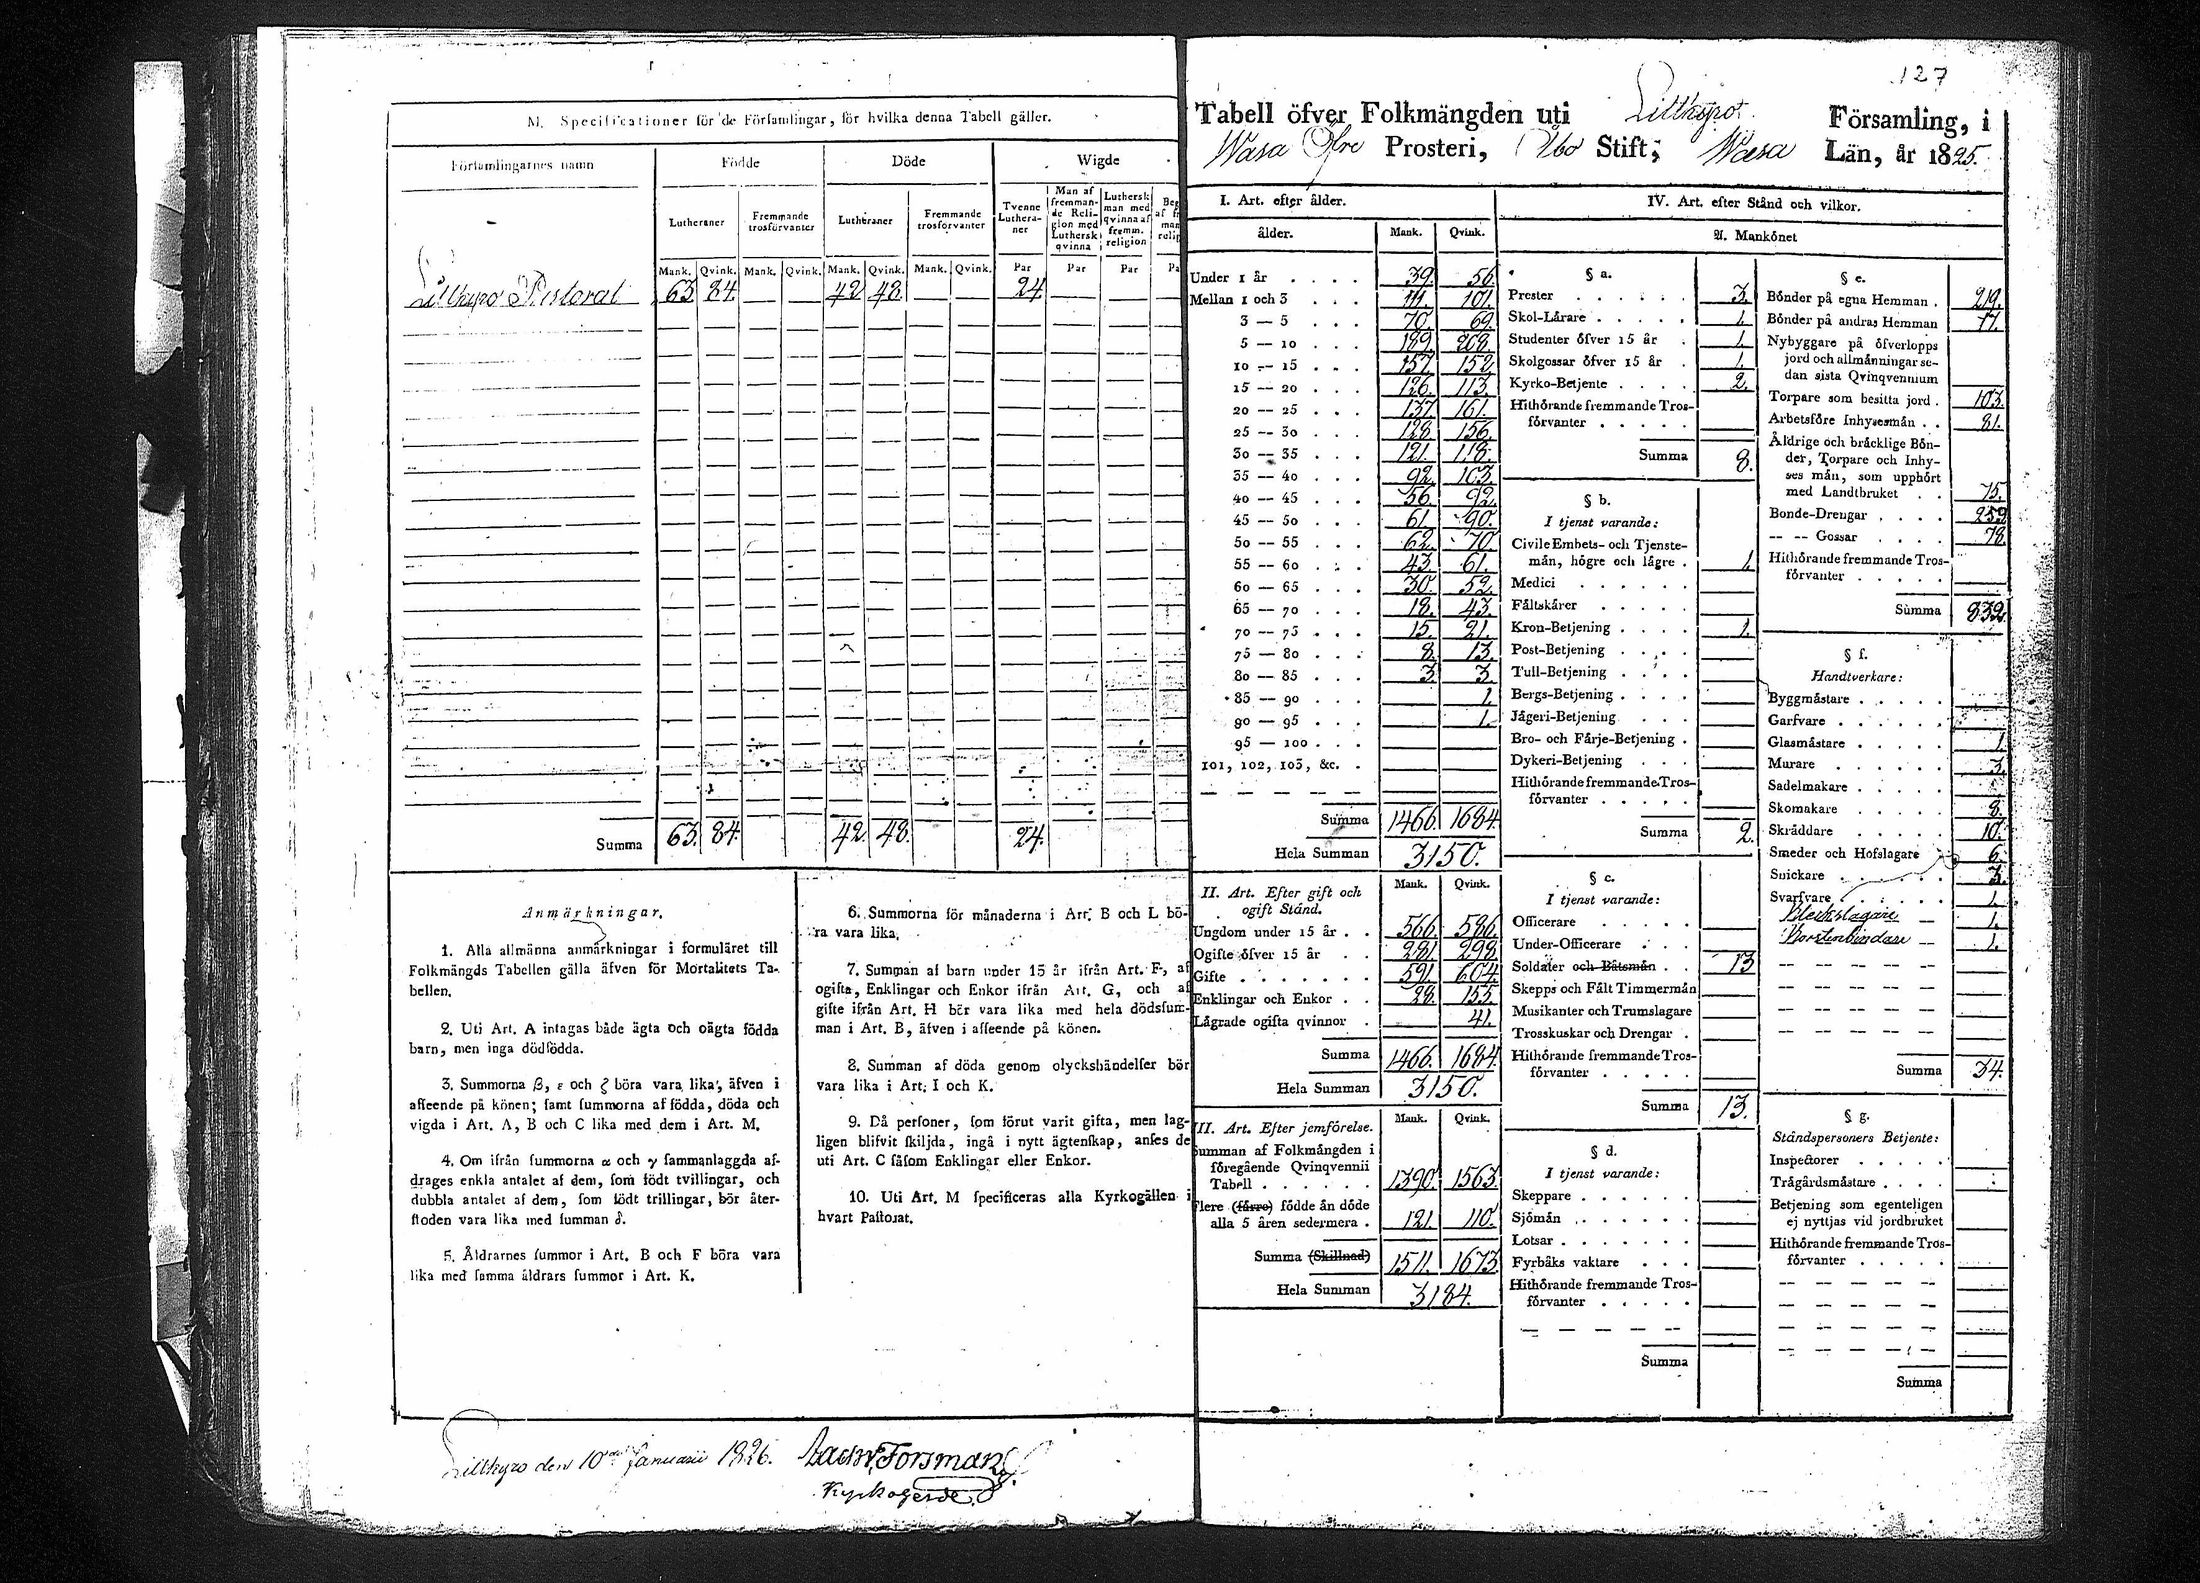 M. Specificationer för de Församlingar, för hvilka denna Tabell gäller.
Församlingarnes namn | Födde | Döde | Wigde
Lutheraner | Fremmande trosförvanter | Lutheraner | Fremmande trosförvanter | Tvenne Lutheraner | Man af fremmande Religion med Luthersk qvinna | Luthersk man med qvinna af fremm. religion
Mank. | Qvink. | Mank. | Qvink. | Mank. | Qvink. | Mank. | Qvink. | Par | Par | Par
Lillkyro Pastorat 63. 84. 42. 48. 24.
Summa 63. 84. 42. 48. 24.
Anmärkningar.
1. Alla allmänna anmärkningar i formuläret till
Folkmängds Tabellen gälla äfven för Mortalitets Ta-
bellen.
2. Uti Art. A intagas både ägta och oägta födda
barn, men inga dödfödda.
3. Summorna β, ε och ζ böra vara lika, äfven i
afseende på könen; samt summorna af födda, döda och
vigda i Art. A, B och C lika med dem i Art. M.
4. Om ifrån summorna α och γ sammanlaggda af-
drages enkla antalet af dem, som födt tvillingar, och
dubbla antalet af dem, som födt trillingar, bör åter-
stoden vara lika med summan δ.
5. Åldrarnes summor i Art. B och F böra vara
lika med samma åldrars summor i Art. K.
6. Summorna för månaderna i Art. B och L bö-
ra vara lika.
7. Summan af barn under 15 år ifrån Art. F, af
ogifta, Enklingar och Enkor ifrån Art. G, och af
gifte ifrån Art. H bör vara lika med hela dödsfum-
man i Art. B, äfven i afseende på könen.
8. Summan af döda genom olyckshändelser bör
vara lika i Art. I och K.
9. Då personer, som förut varit gifta, men lag-
ligen blifvit skiljda, ingå i nytt ägtenskap, anses de
uti Art. C såsom Enklingar eller Enkor.
10. Uti Art. M specificeras alla Kyrkogällen i
hvart Pastorat.
Lillkyro den 10de Januarii 1826.
Forsman
Kyrkoherde
127
Tabell öfver Folkmängden uti Lillkyro Församling, i
Wasa Öfre Prosteri, Åbo Stift; Wasa Län, år 1825.
I. Art. efter ålder.
ålder. Mank. Qvink.
Under 1 år . . . . 39. 56.
Mellan 1 och 3 . . . 111. 101.
3 — 5 . . . 70. 69.
5 — 10 . . . 189. 208.
10 — 15 . . . 157. 152.
15 — 20 . . . 126. 113.
20 — 25 . . . 137. 161.
25 — 30 . . . 128. 156.
30 — 35 . . . 121. 118.
35 — 40 . . . 92. 103.
40 — 45 . . . 56. 92.
45 — 50 . . . 61. 90.
50 — 55 . . . 62. 70.
55 — 60 . . . 43. 61.
60 — 65 . . . 30. 52.
65 — 70 . . . 18. 43.
70 — 75 . . . 15. 21.
75 — 80 . . . 8. 13.
80 — 85 . . . 3. 3.
85 — 90 . . . 1.
90 — 95 . . . 1.
95 — 100 . . .
101, 102, 103, &c. .
Summa 1466. 1684.
Hela Summan 3150.
II. Art. Efter gift och
ogift Stånd. Mank. Qvink.
Ungdom under 15 år . . 566. 586.
Ogifte öfver 15 år . . 281. 298.
Gifte . . . . . . . 591. 604.
Enklingar och Enkor . . 28. 155.
Lägrade ogifta qvinnor . 41.
Summa 1466. 1684.
Hela Summan 3150.
III. Art. Efter jemförelse. Mank. Qvink.
Summan af Folkmängden i
föregående Qvinqvennii
Tabell . . . . . . 1390. 1563.
Flere (färre) födde än döde
alla 5 åren sedermera . 121. 110.
Summa (Skillnad) 1511. 1673.
Hela Summan 3184.
IV. Art. efter Stånd och vilkor.
A. Mankönet
§ a.
Prester . . . . . . 3.
Skol-Lärare . . . . . 1.
Studenter öfver 15 år . 1.
Skolgossar öfver 15 år . 1.
Kyrko-Betjente . . . . 2.
Hithörande fremmande Tros-
förvanter . . . . .
Summa 8.
§ b.
I tjenst varande:
Civile Embets- och Tjenste-
män, högre och lägre . 1.
Medici . . . . . .
Fältskärer . . . . .
Kron-Betjening . . . . 1.
Post-Betjening . . . .
Tull-Betjening . . . .
Bergs-Betjening . . . .
Jägeri-Betjening . . .
Bro- och Färje-Betjening .
Dykeri-Betjening . . .
Hithörande fremmande Tros-
förvanter . . . . .
Summa 2.
§ c.
I tjenst varande:
Officerare . . . . .
Under-Officerare . . .
Soldater och Båtsmän . . 13
Skepps och Fält Timmermän
Musikanter och Trumslagare
Trosskuskar och Drengar .
Hithörande fremmande Tros-
förvanter . . . . .
Summa 13.
§ d.
I tjenst varande:
Skeppare . . . . . .
Sjömän . . . . . .
Lotsar . . . . . . .
Fyrbåks vaktare . . .
Hithörande fremmande Tros-
förvanter . . . . .
Summa
§ e.
Bönder på egna Hemman . 219.
Bönder på andras Hemman 17.
Nybyggare på öfverlopps
jord och allmänningar se-
dan sista Qvinqvennium
Torpare som besitta jord . 103.
Arbetsföre Inhysesmän . . 81.
Åldrige och bräcklige Bön-
der, Torpare och Inhy-
ses män, som upphört
med Landtbruket . . 75.
Bonde-Drengar . . . . 259
-- -- Gossar . . . . 78.
Hithörande fremmande Tros-
förvanter . . . . .
Summa 832.
§ f.
Handtverkare:
Byggmästare . . . . .
Garfvare . . . . . .
Glasmästare . . . . . 1.
Murare . . . . . . 3.
Sadelmakare . . . . .
Skomakare . . . . . 8.
Skräddare . . . . . 10.
Smeder och Hofslagare 6.
Snickare . . . . . . 3.
Svarfvare . . . . . 1.
Bleckslagare — 1.
Borstenbindare — 1.
Summa 34.
§ g.
Ståndspersoners Betjente:
Inspectorer . . . . .
Trägårdsmästare . . . .
Betjening som egenteligen
ej nyttjas vid jordbruket
Hithörande fremmande Tros-
förvanter . . . . .
Summa